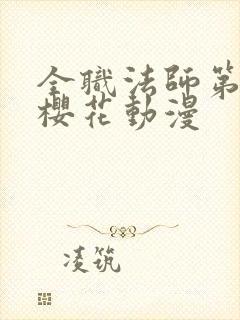 全職法師第
櫻花動漫
凌筑